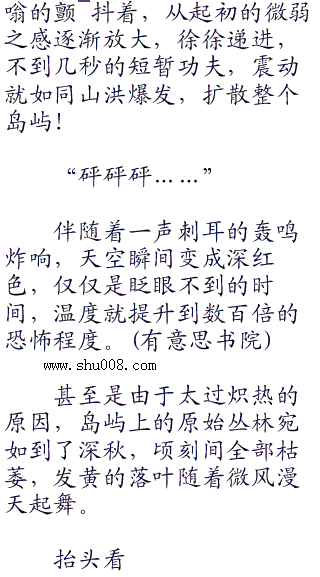 嗡的颤 抖着，从起初的微弱
之感逐渐放大，徐徐递进，
不到几秒的短暂功夫，震动
就如同山洪爆发，扩散整个
岛屿！
“砰砰砰... ...”
伴随着一声刺耳的轰鸣
炸响，天空瞬间变成深红
色，仅仅是眨眼不到的时
间，温度就提升到数百倍的
恐怖程度。(有意思书院)
www.shu008.com
甚至是由于太过炽热的
原因，岛屿上的原始丛林宛
如到了深秋，顷刻间全部枯
萎，发黄的落叶随着微风漫
天起舞。
抬头看